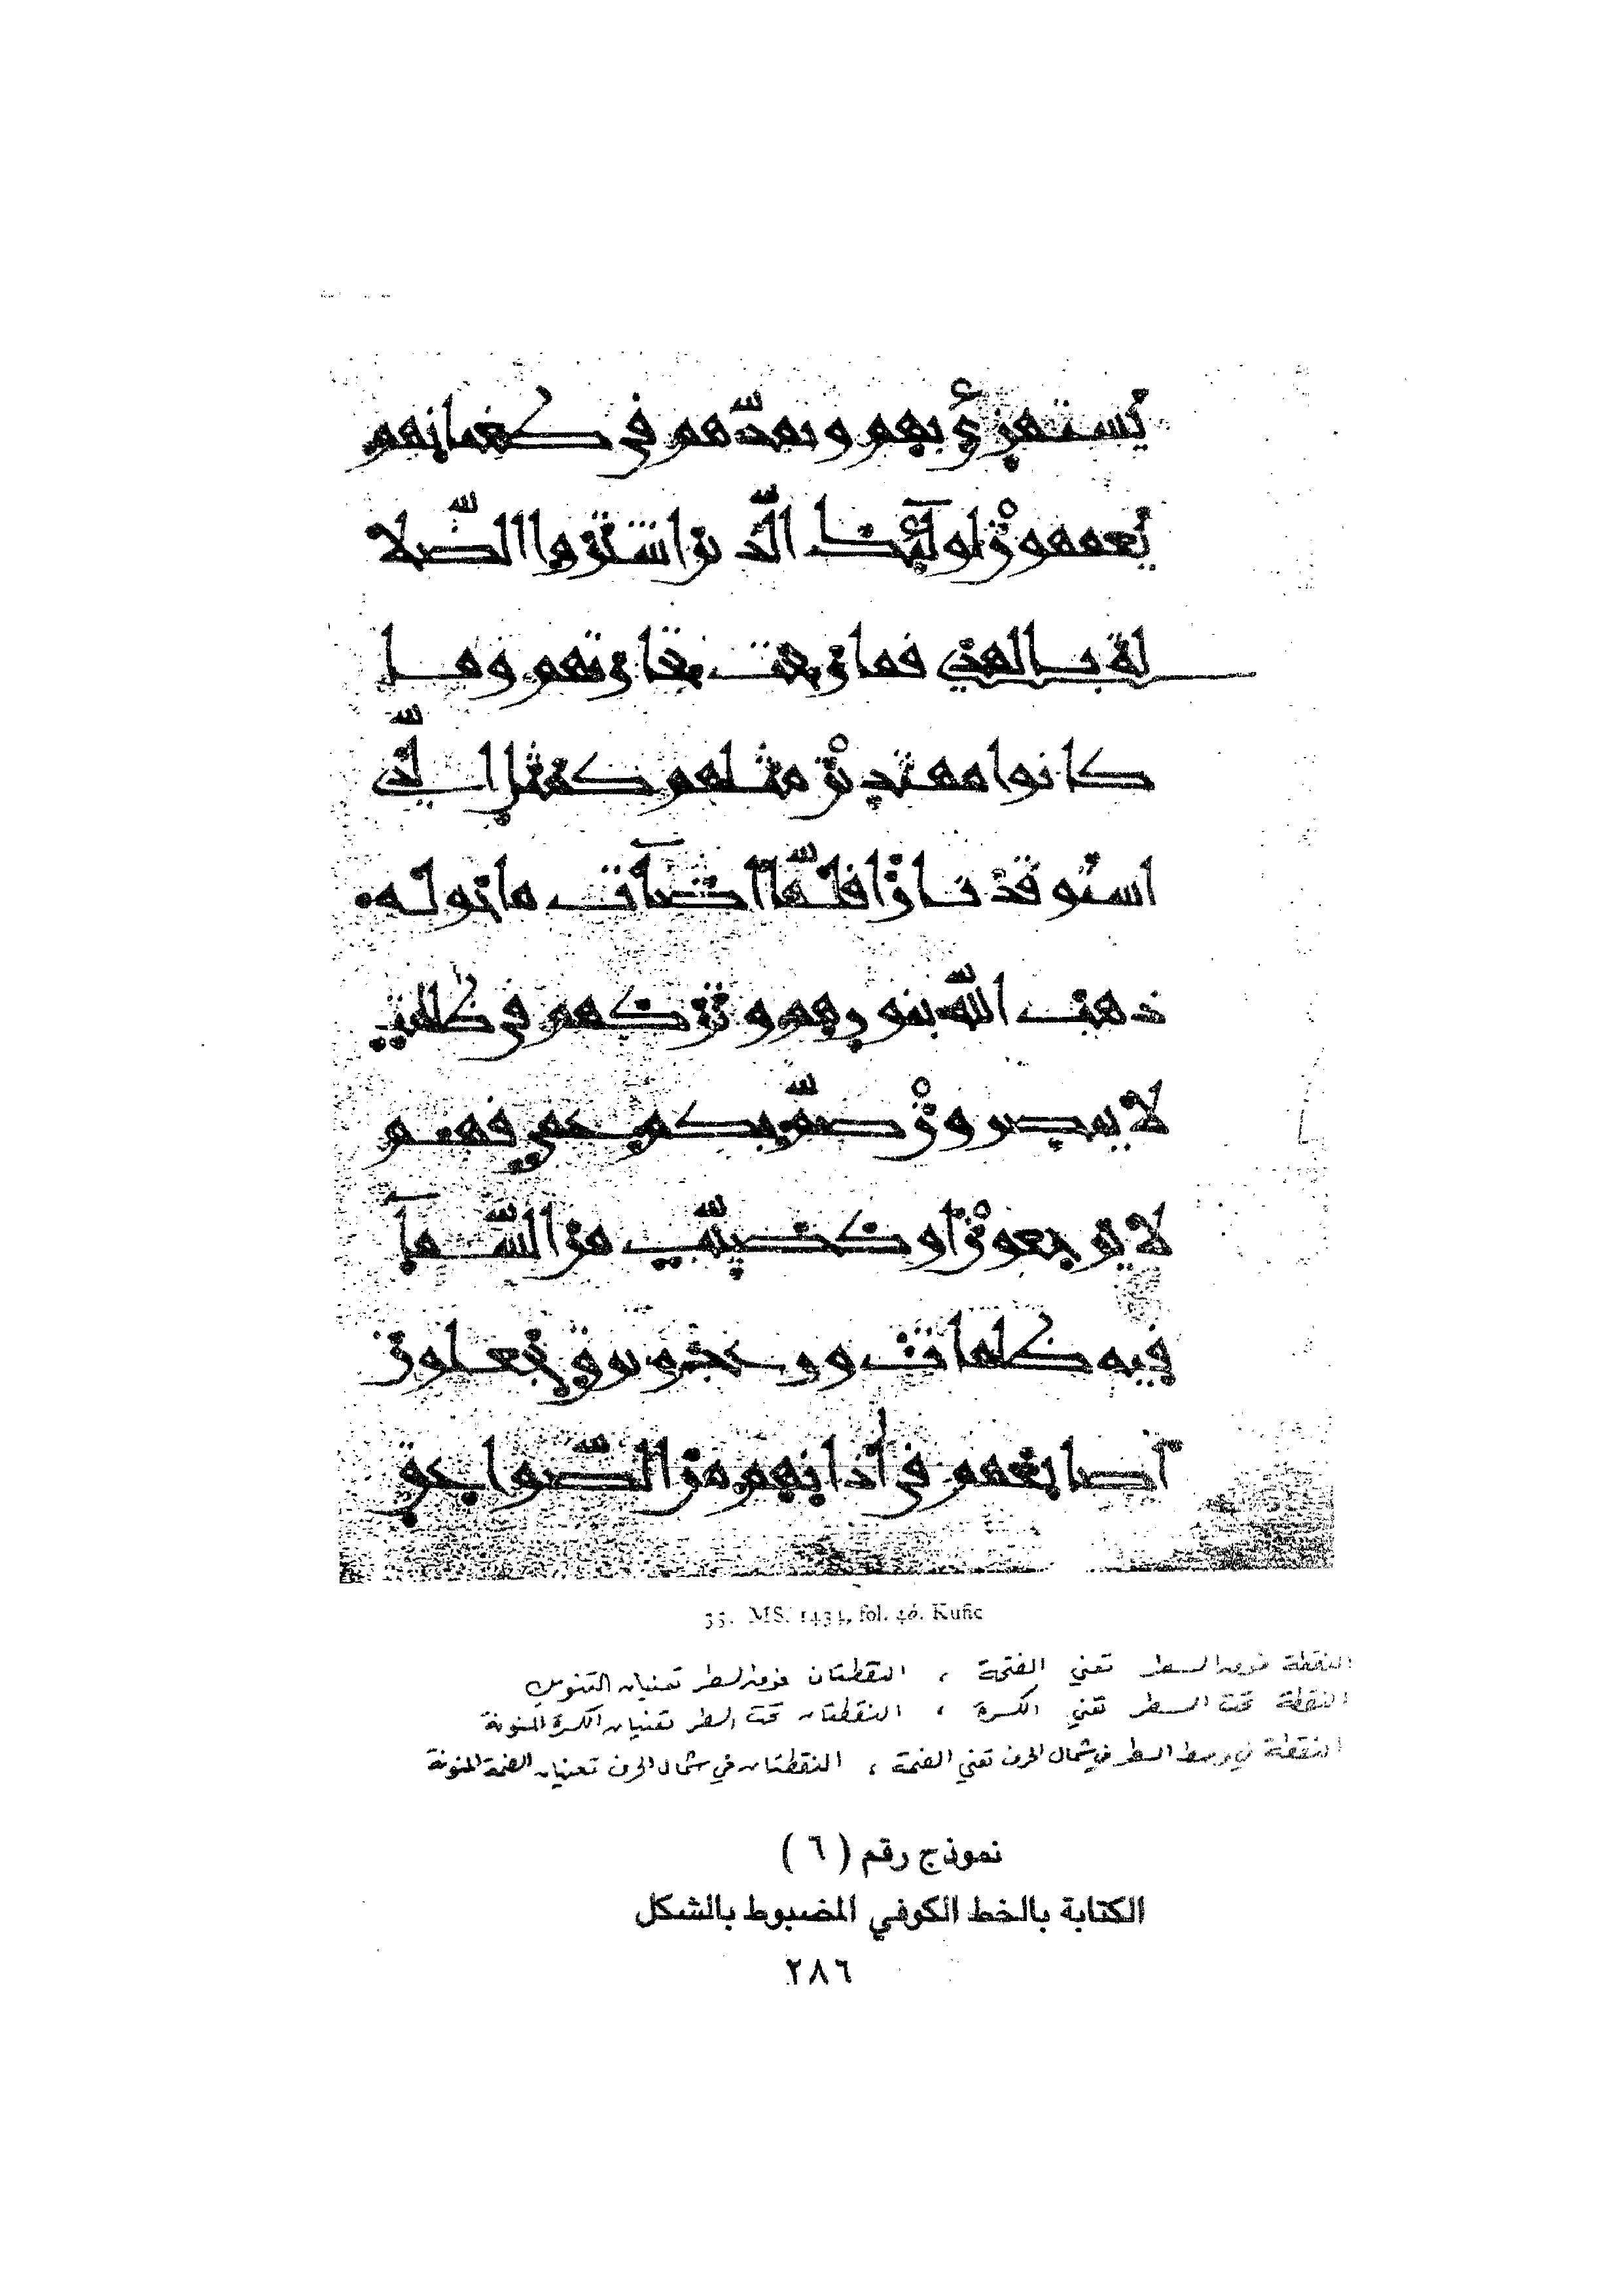 يستهزئ بهم ويمدّهم في طغيانهم
يعمهون اولئك الذين اشتروا الضّلا
لة بالهدى فما ربحت تجارتهم وما
كانوا مهتدين مثلهم كمثل الذي
استوقد نارا فلمّا اضآت ما حوله
ذهب الله بنورهم وتركهم في ظلمت
لا يبصرون صمّ بكم عمي فهم
لا يرجعون او كصيّب من السّمآ
فيه ظلمات ورعد وبرق يجعلون
اصابعهم في أذانهم من الصّواعق
33. MS. 1434, fol. 4b. Kufic
النقطة فوق السطر تعني الفتحة ، النقطتان فوق السطر تعنيان التنوين
النقطة تحت السطر تعني الكسرة ، النقطتان تحت السطر تعنيان الكسرة المنونة
النقطة في وسط السطر في شمال الحرف تعني الضمة ، النقطتان في شمال الحرف تعنيان الضمة المنونة
نموذج رقم ( ٦ )
الكتابة بالخط الكوفي المضبوط بالشكل
٢٨٦